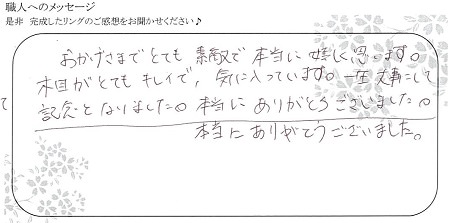 職人へのメッセージ
是非 完成したリングのご感想をお聞かせください♪
おかげさまでとても 素敵で 本当に 嬉しく思います。
木目がとても キレイで、気に入っています。一生大事にして
記念となりました。本当に ありがとうございました。
本当に ありがとうございました。
て